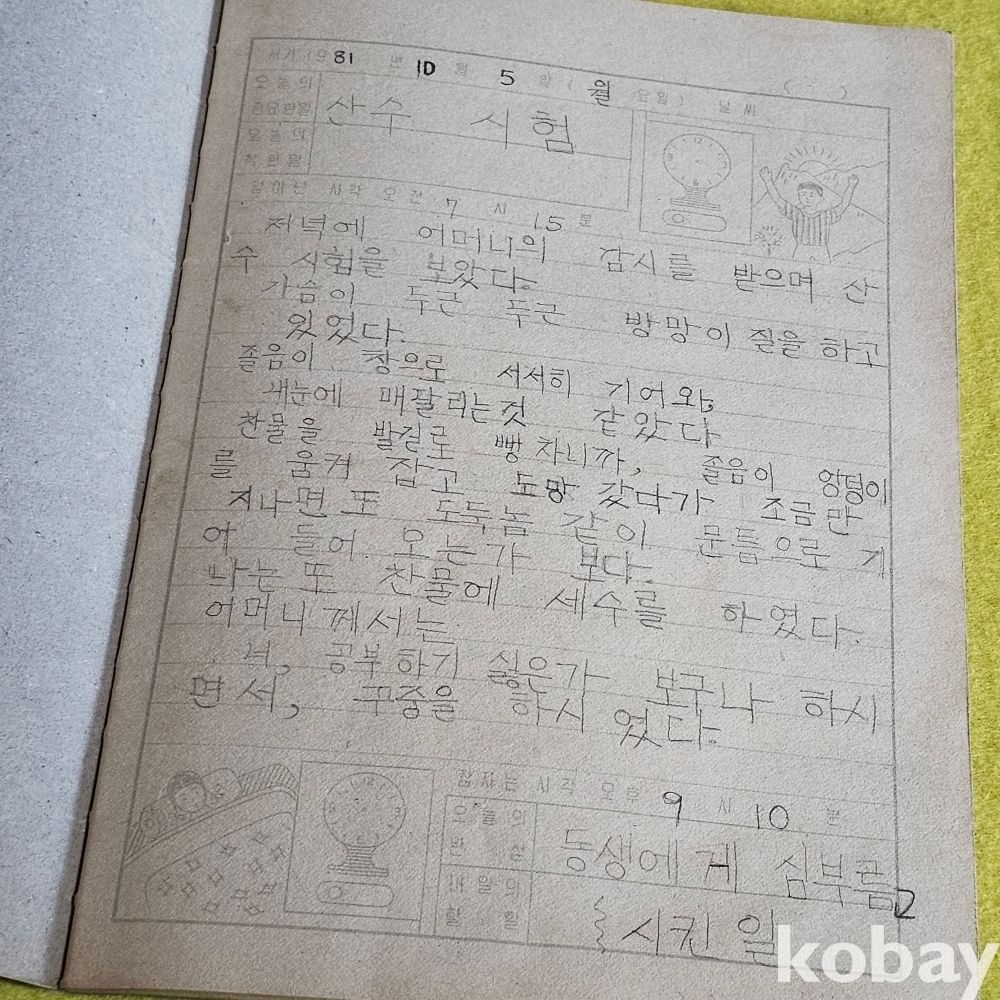 서기 1981 년 10 월 5 일 ( 월 요일 ) 날씨 ( )
오늘의
중요한일
산수 시험
오늘의
착한일
일어난 시각 오전 7 시 15 분
저녁에 어머니의 감시를 받으며 산
수 시험을 보았다.
가슴이 두근 두근 방망이 질을 하고
있었다.
졸음이 창으로 서서히 기어와,
내눈에 매달리는것 같았다
찬물을 발길로 뻥 차니까, 졸음이 엉덩이
를 움켜 잡고 도망 갔다가 조금만
지나면 또 도둑놈 같이 문틈으로 기
어 들어 오는가 보다.
나는 또 찬물에 세수를 하였다.
어머니께서는
너, 공부하기 싫은가 보구나 하시
면서, 꾸중을 하시 였다.
잠자는 시각 오후 9 시 10 분
오늘의
반성
동생에게 심부름
시킨 일
내일의
할일
kobay